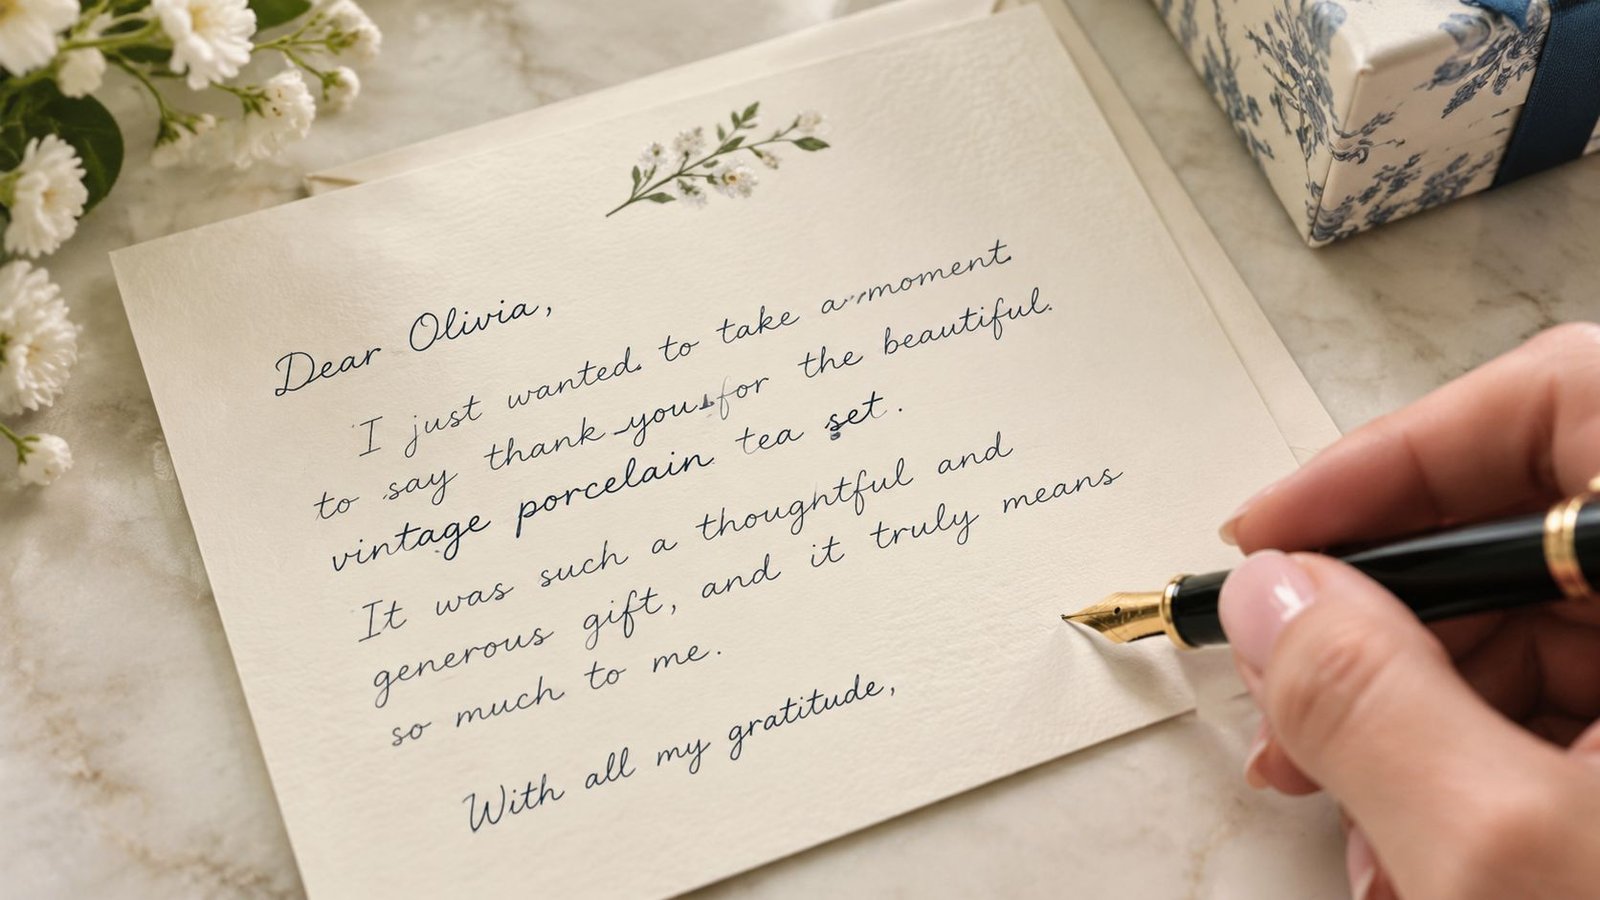 Dear Olivia,
I just wanted to take a moment
to say thank you for the beautiful
vintage porcelain tea set.
It was such a thoughtful and
generous gift, and it truly means
so much to me.
With all my gratitude,